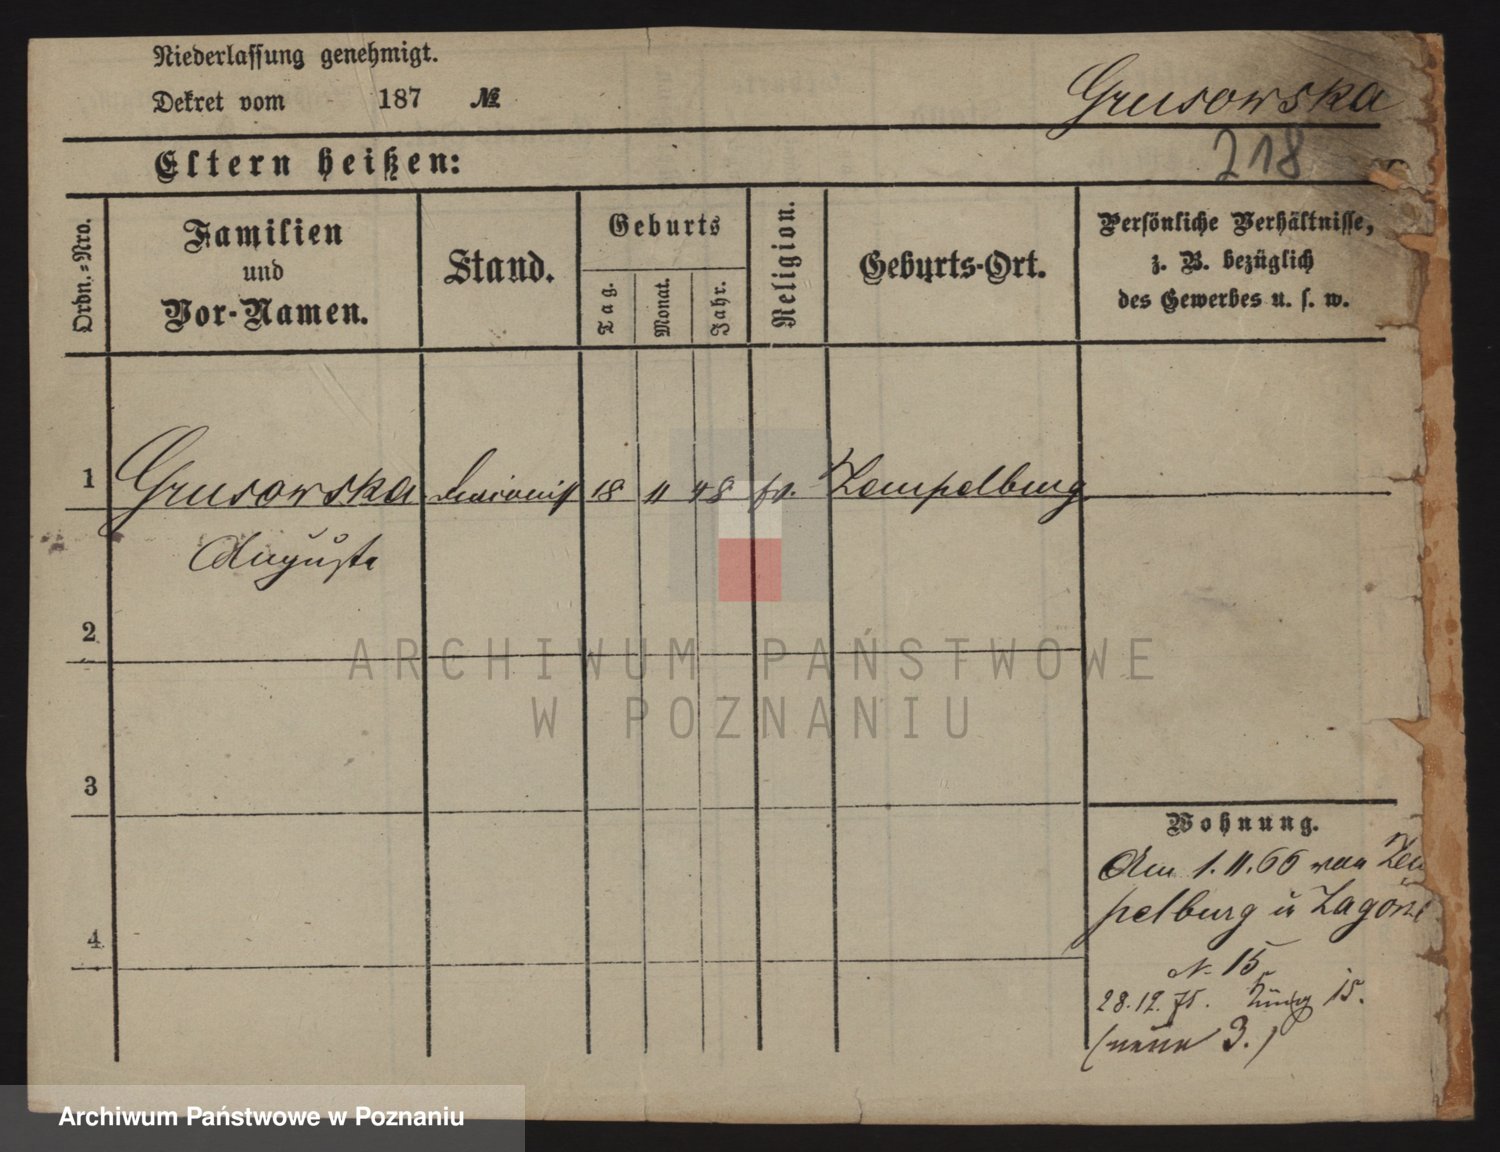 Niederlassung genehmigt.
Dekret vom 187 №
Grusowska
218
Eltern heißen:
Ordn.-Nro.
Familien
und
Vor-Namen.
Stand.
Geburts
Tag.
Monat.
Jahr.
Religion.
Geburts-Ort.
Persönliche Verhältnisse,
z. B. bezüglich
des Gewerbes u. s. w.
1 Grusowska 18 11 48 Zempelburg
Auguste
2
3
4
Wohnung.
Am 1.11.66 von Zem
pelburg Zagórze
N. 15
28.12.75. 15.
3.)
ARCHIWUM PAŃSTWOWE
W POZNANIU
Archiwum Państwowe w Poznaniu